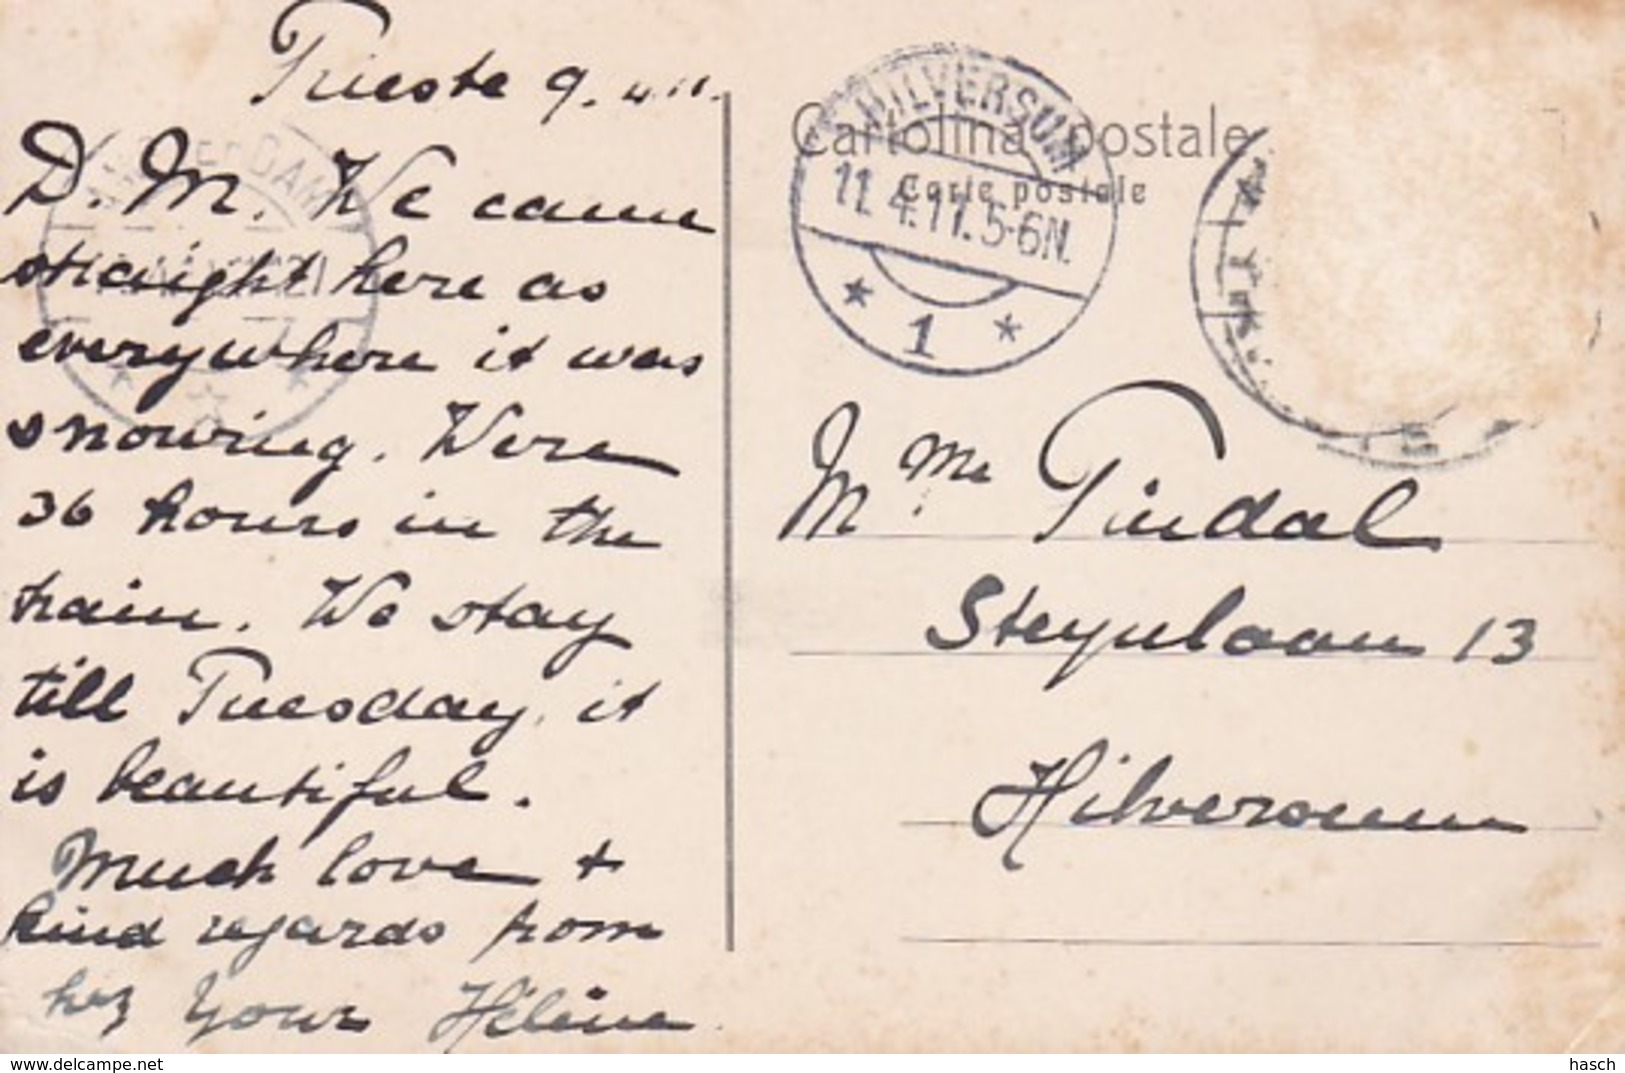 Trieste 9.4.11.
D. M. We came
straight here as
everywhere it was
snowing. Were
36 hours in the
train. We stay
till Tuesday, it
is beautiful.
Much love +
kind regards from
Your Hélène
Cartolina postale
Carte postale
HILVERSUM
11.4.11.5-6N.
* 1 *
AMSTERDAM
Mme Tindal
Steynlaan 13
Hilversum
hasch
www.delcampe.net